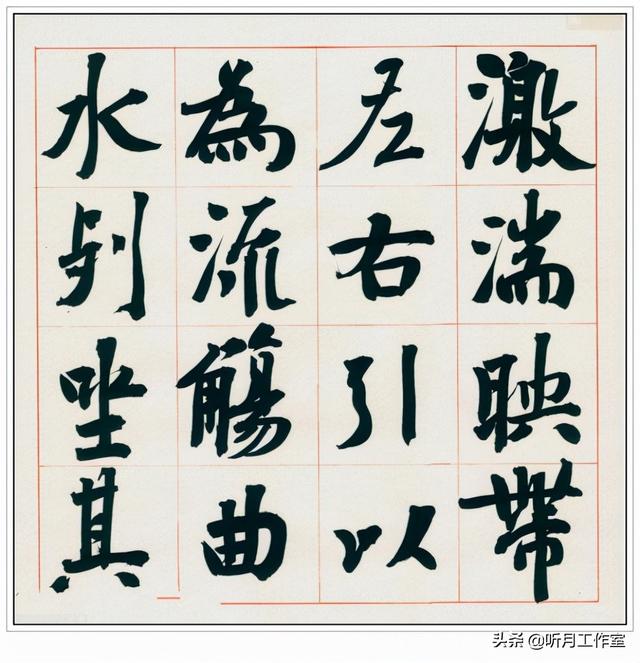 激湍映帶
左右引以
為流觴曲
水列坐其
头条 @听月工作室